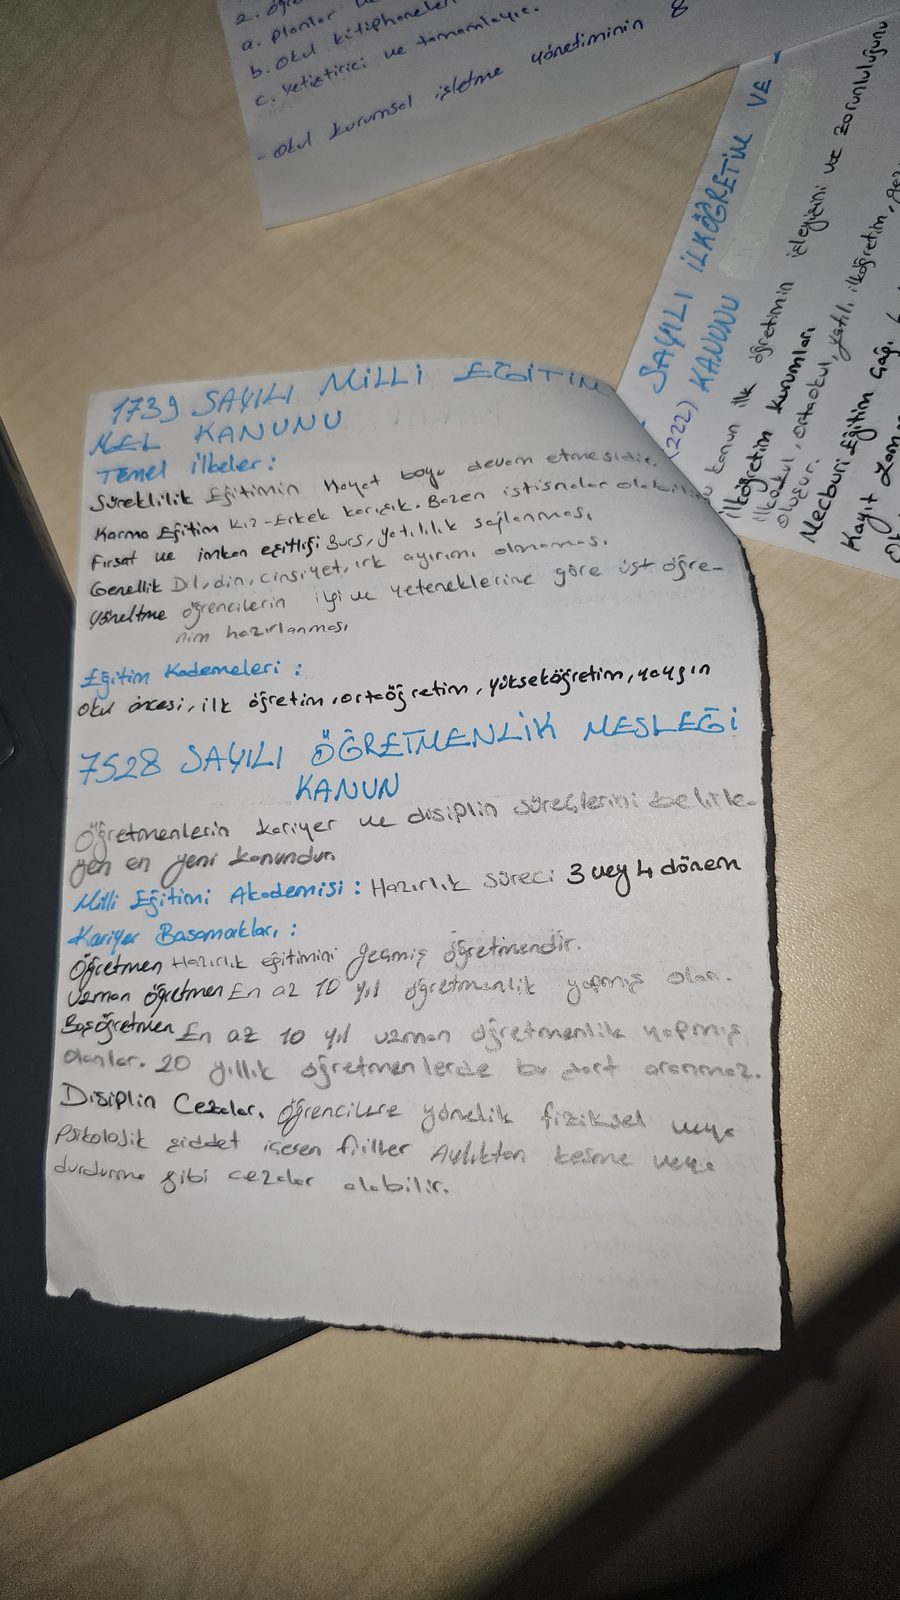 a. planlar
b. Okul kütüphaneleri
c. Yetiştirici ve tamamlayıcı.
- Okul kurumsal işletme yönetiminin 8
SAYILI İLKÖĞRETİM VE
(222) KANUNU
kanun ilk öğretimin işleyişini ve zorunluluğunu
İlköğretim kurumları
ilkokul, ortaokul, yatılı ilköğretim,
oluşur.
Mecburi Eğitim Çağı
Kayıt Zama
1739 SAYILI MİLLİ EĞİTİM
MEL KANUNU
Temel ilkeler :
Süreklilik Eğitimin Hayat boyu devam etmesidir.
Karma Eğitim Kız-Erkek karışık. Bazen istisnalar olabilir
Fırsat ve imkan eşitliği Burs, yatılılık sağlanması
Genellik Dil, din, cinsiyet, ırk ayırımı olmaması
Yöneltme öğrencilerin ilgi ve yeteneklerine göre üst öğre-
nim hazırlanması
Eğitim Kademeleri :
Okul öncesi, ilk öğretim, ortaöğretim, yükseköğretim, yaygın
7528 SAYILI ÖĞRETMENLİK MESLEĞİ
KANUN
Öğretmenlerin kariyer ve disiplin süreçlerini belirle-
yen en yeni kanundur.
Milli Eğitimi Akademisi : Hazırlık süreci 3 vey 4 dönem
Kariyer Basamakları :
Öğretmen Hazırlık eğitimini geçmiş öğretmendir.
Uzman öğretmen En az 10 yıl öğretmenlik yapmış olan.
Başöğretmen En az 10 yıl uzman öğretmenlik yapmış
olanlar. 20 yıllık öğretmenlerde bu şart aranmaz.
Disiplin Cezaları Öğrencilere yönelik fiziksel veya
Psikolojik şiddet içeren fiiller Aylıktan kesme veya
durdurma gibi cezalar alabilir.